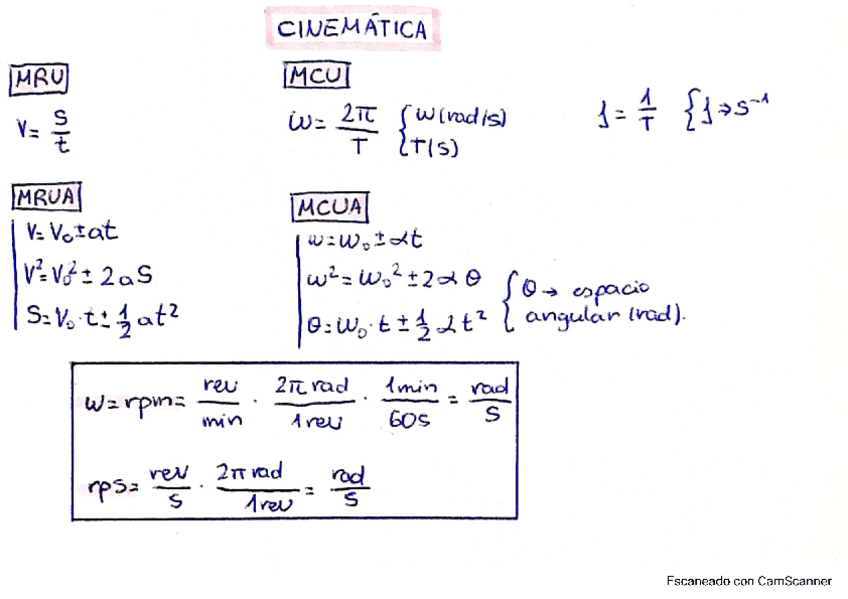 CINEMÁTICA
MRU
V = s/t
MCU
ω = 2π/T { ω (rad/s)
T (s)
f = 1/T { f → s⁻¹
MRUA
V = V₀ ± at
V² = V₀² ± 2aS
S = V₀ · t ± 1/2 at²
MCUA
ω = ω₀ ± αt
ω² = ω₀² ± 2αθ
θ = ω₀ · t ± 1/2 αt²
{ θ → espacio
angular (rad).
ω = rpm = rev/min · 2π rad/1 rev · 1 min/60s = rad/s
rps = rev/s · 2π rad/1 rev = rad/s
Escaneado con CamScanner